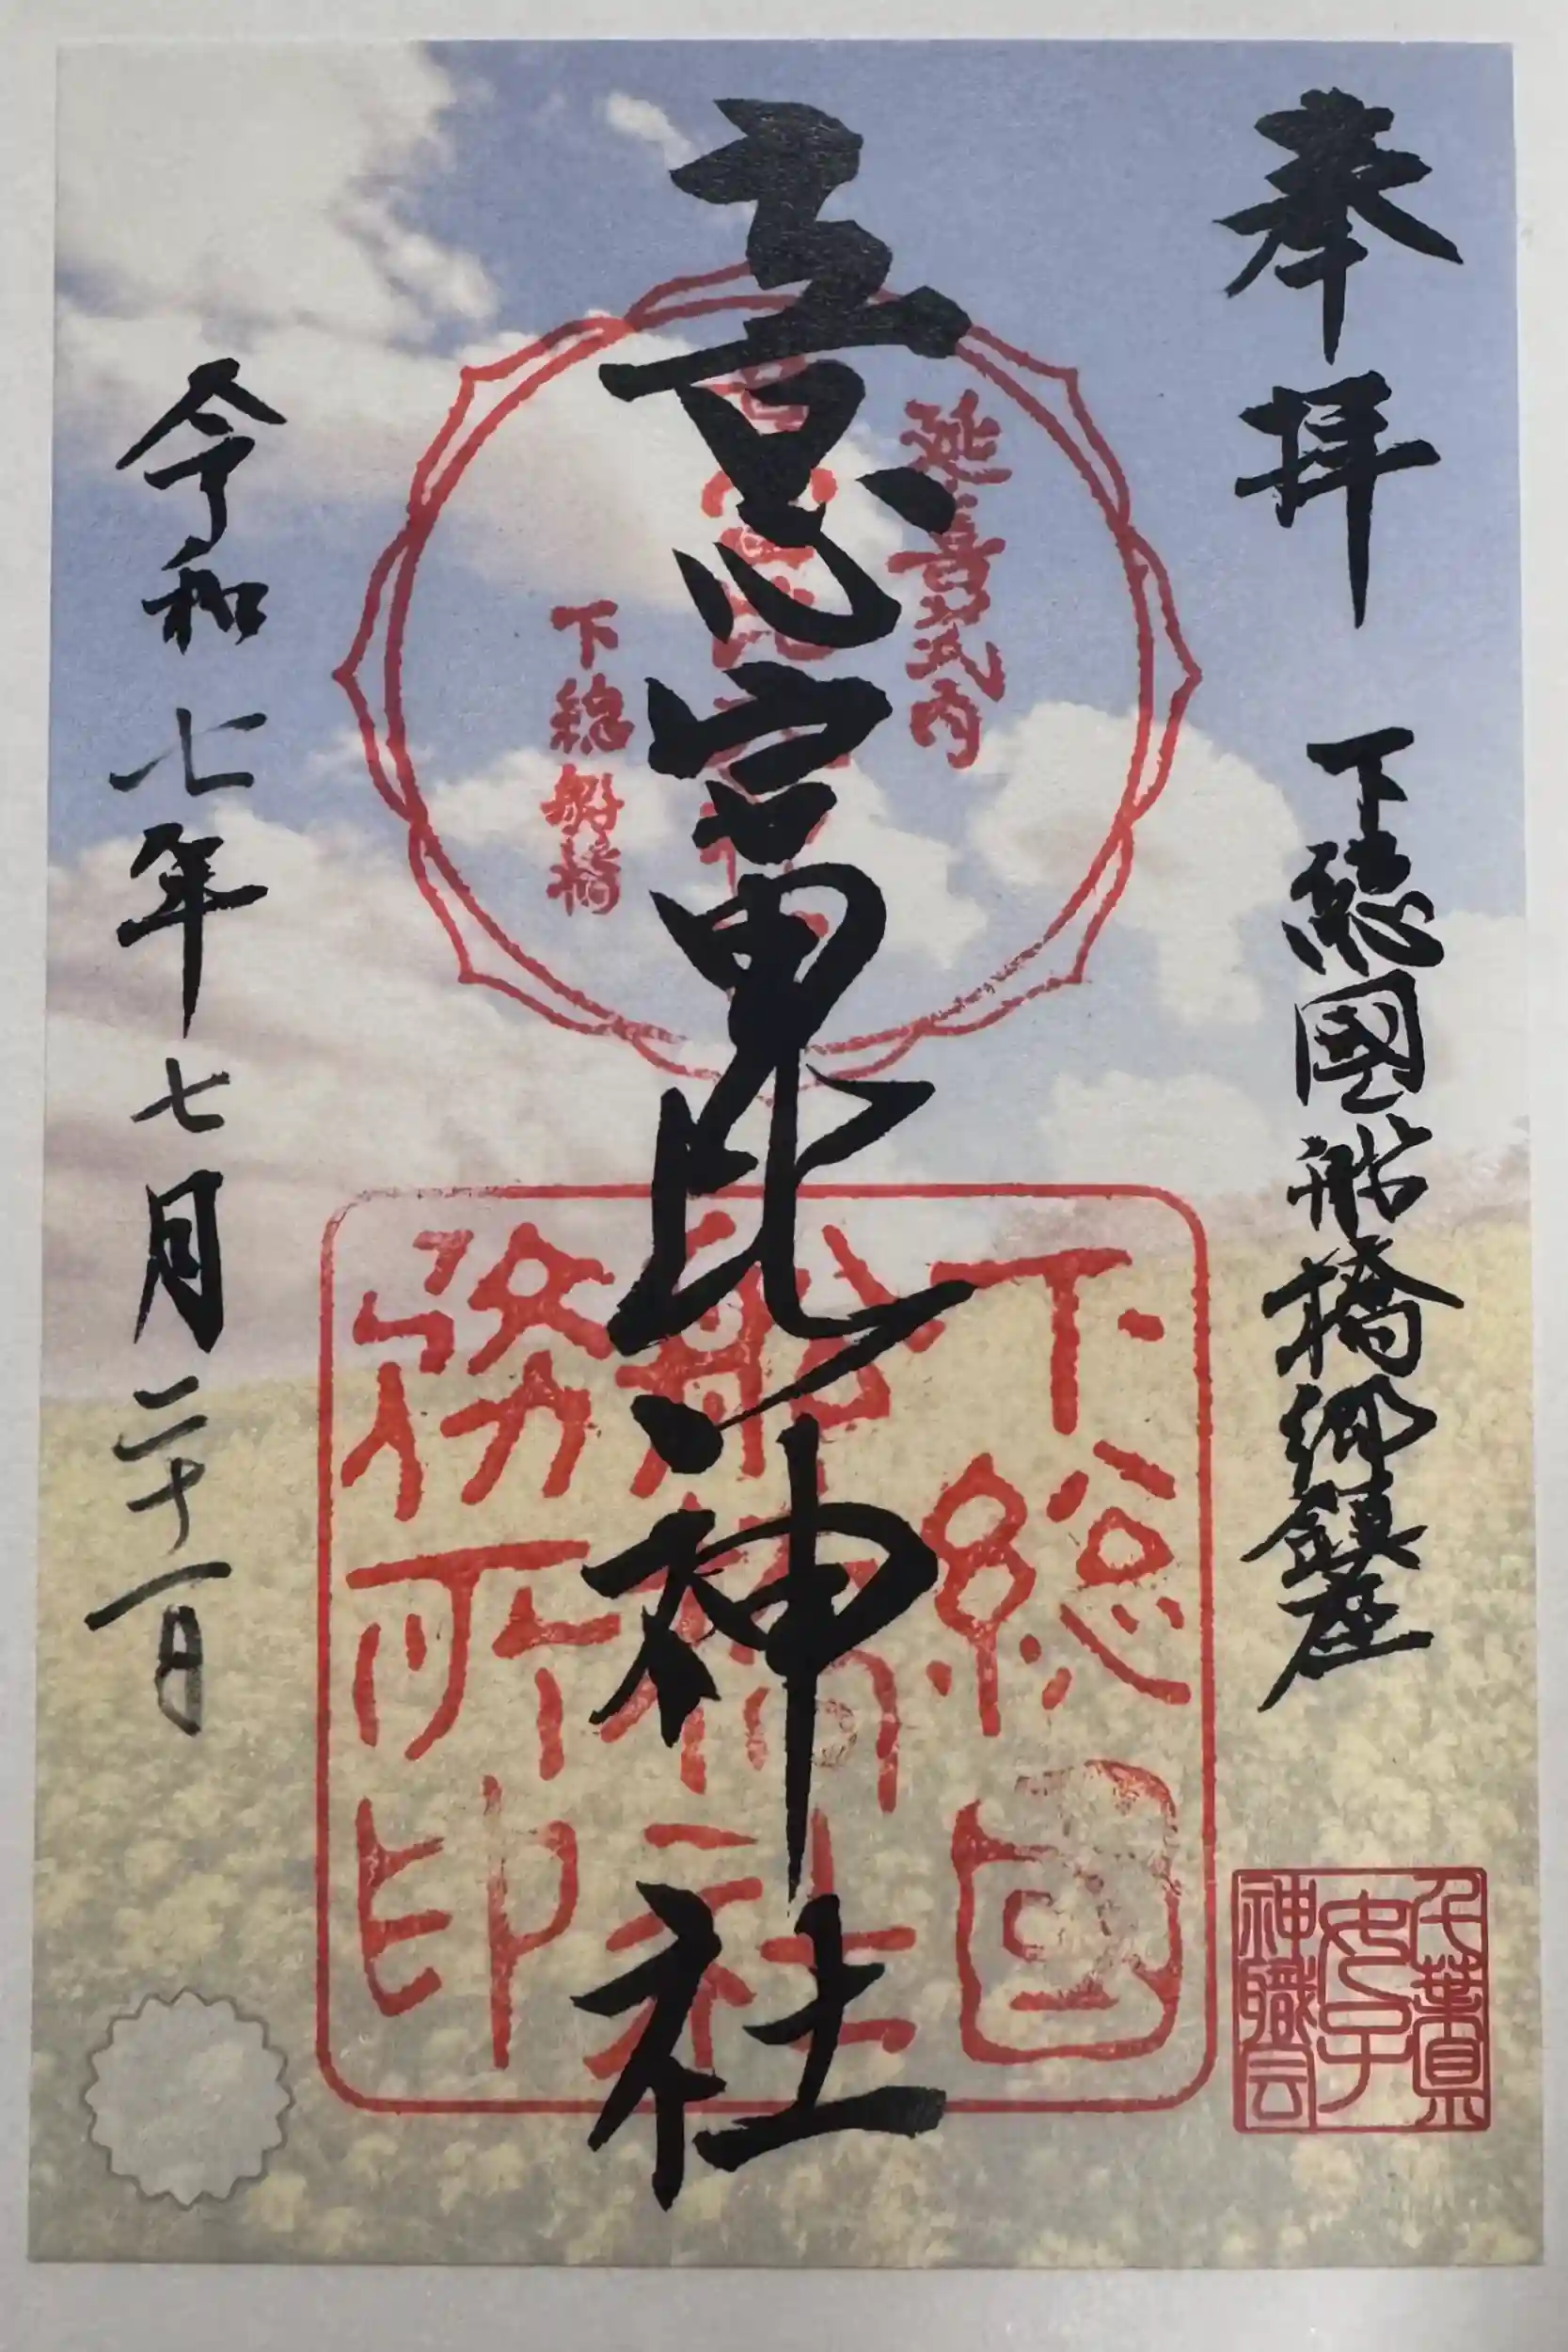 奉拝
下総國船橋郷鎮座
意富比神社
令和七年七月二十一日
延喜式内
下総船橋
下総国
船橋社
務所印
千葉県
女子
神職会